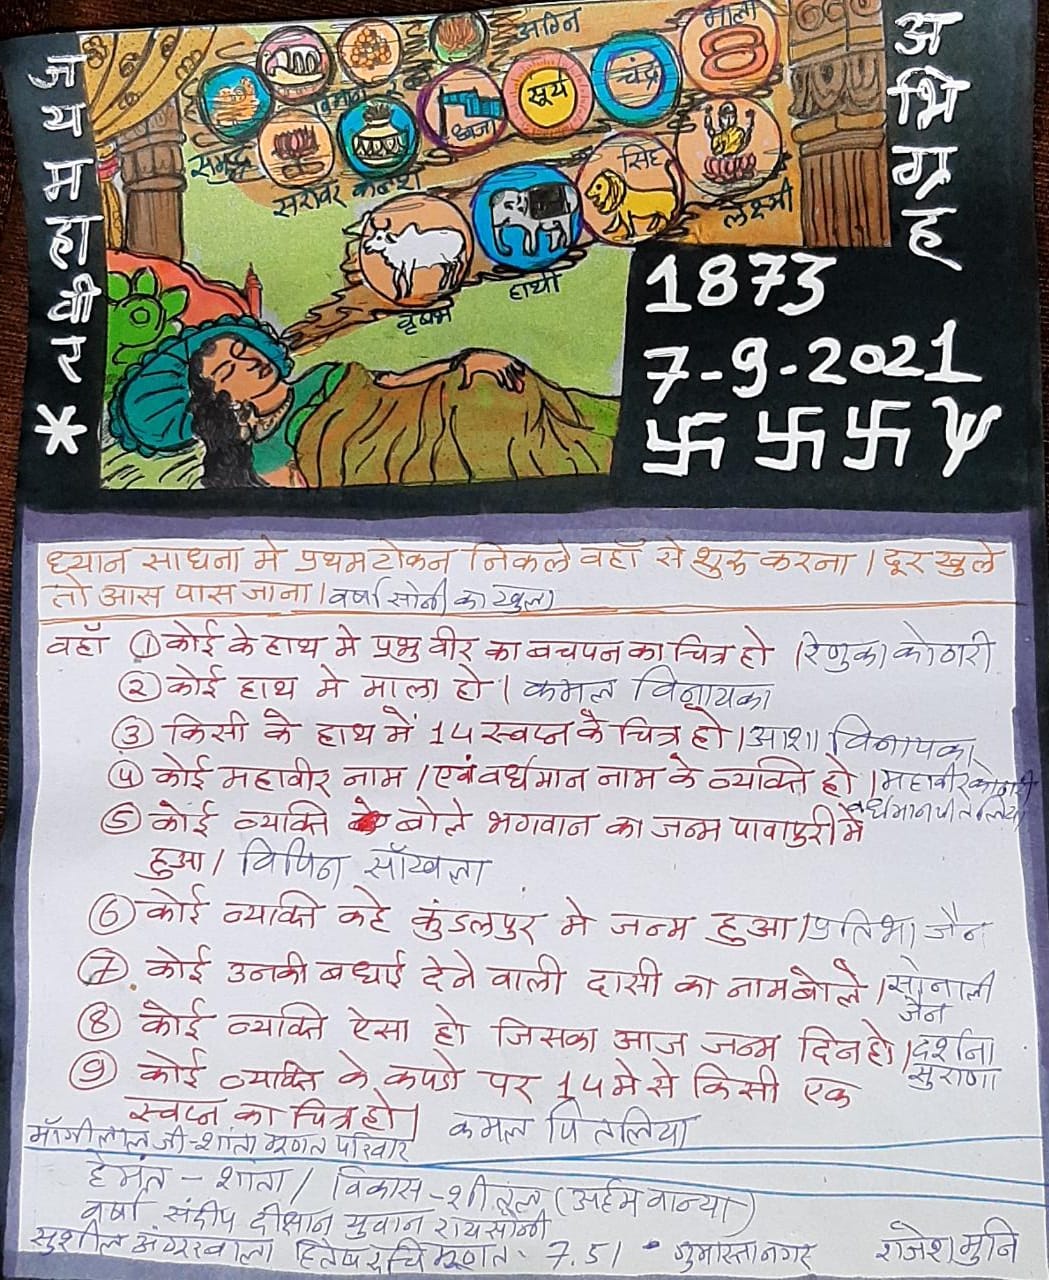 जय महावीर *
अभिग्रह
अग्नि
माला
विमान
ध्वजा
सूर्य
चंद्र
समुद्र
सरोवर कलश
सिंह
लक्ष्मी
हाथी
वृषभ
1873
7-9-2021
卐 卐 卐
ध्यान साधना मे प्रथम टोकन निकले वहाँ से शुरू करना । दूर खुले
तो आस पास जाना । वर्षा सोनी का खुला
वहाँ ① कोई के हाथ मे प्रभु वीर का बचपन का चित्र हो । रेणुका कोठारी
② कोई हाथ मे माला हो । कमल विनायका
③ किसी के हाथ में 14 स्वप्न के चित्र हो । आशा विनायका
④ कोई महावीर नाम / एवं वर्धमान नाम के व्यक्ति हो । महावीर कोठारी
वर्धमान पीतलिया
⑤ कोई व्यक्ति बोले भगवान का जन्म पावापुरी में
हुआ / विपिन साँखला
⑥ कोई व्यक्ति कहे कुंडलपुर मे जन्म हुआ / प्रतिभा जैन
⑦ कोई उनकी बधाई देने वाली दासी का नाम बोले / सोनाली
जैन
⑧ कोई व्यक्ति ऐसा हो जिसका आज जन्म दिन हो । दर्शना
सुराणा
⑨ कोई व्यक्ति के कपडो पर 14 मे से किसी एक
स्वप्न का चित्र हो । कमल पितलिया
माँगीलाल जी - शांता मूणत परिवार
हेमंत - शांता / विकास - शीतल (अर्हम वान्या)
वर्षा संदीप दीक्षान युवान राय सोनी
सुशील अग्रवाला हितेष रुचि मूणत . 7.51 • गुमास्ता नगर राजेश मुनि